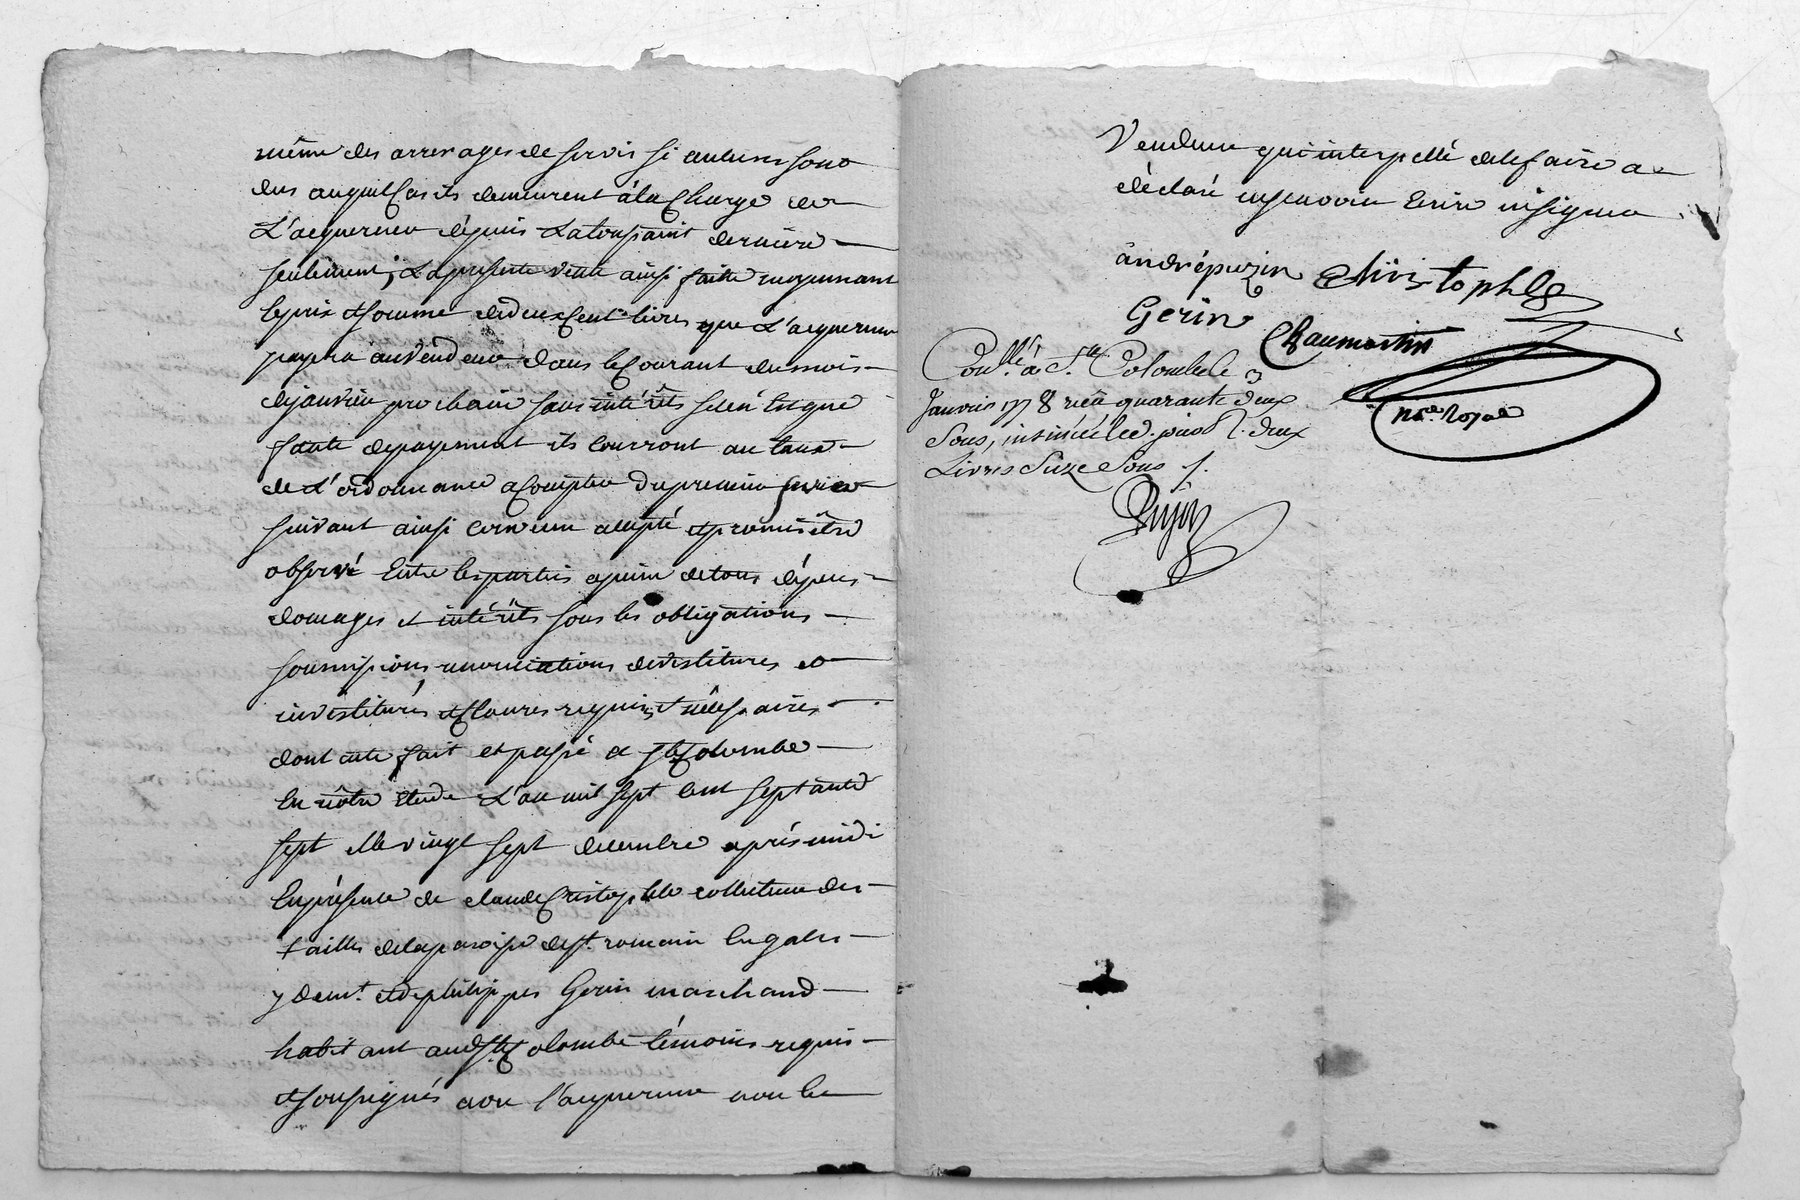 même des arrerages de servis si aucuns sont
dus auquel Cas ils demeurent à la Charge de
L'acquereur depuis La toussaint derniere
seulement; La presente vente ainsi faitte moyennant
le prix et somme de deux Cent livres que L'acquereur
payera au vendeur dans le Courant du mois
de janvier prochain sans intérêts jusqué
faute de payement ils courront au taux
de L'ordonnance a Compter du premier fevrier
suivant ainsi convenu accepté et promis être
observé Entre les parties a peine de tous dépens
domages et intérêts sous les obligations
soumissions renonciations devestitures et
investitures et Clauses requises et nécessaires
dont acte fait et passé a Ste Colombe
En nôtre Etude L'an mil sept cent septante
sept et le vingt sept decembre après midi
En présence de claude Cristophle collecteur des
tailles de la paroisse de st. romain En gales
y demt. et de philippes Gerin marchand
habitant aud Ste Colombe témoins requis
et soussignés avec l'acquereur non le
Vendeur qui interpellé de le faire a
déclaré ne savoir Ecrire ni signer
andré puzin Christophle
Gerin Chaumartin
nore. Royal
Conllé. à Ste. Colombe le 3
Janvier 1778 reçu quarante deux
Sous, insinué led. jour R. deux
Livres Seize Sous /.
Dujon